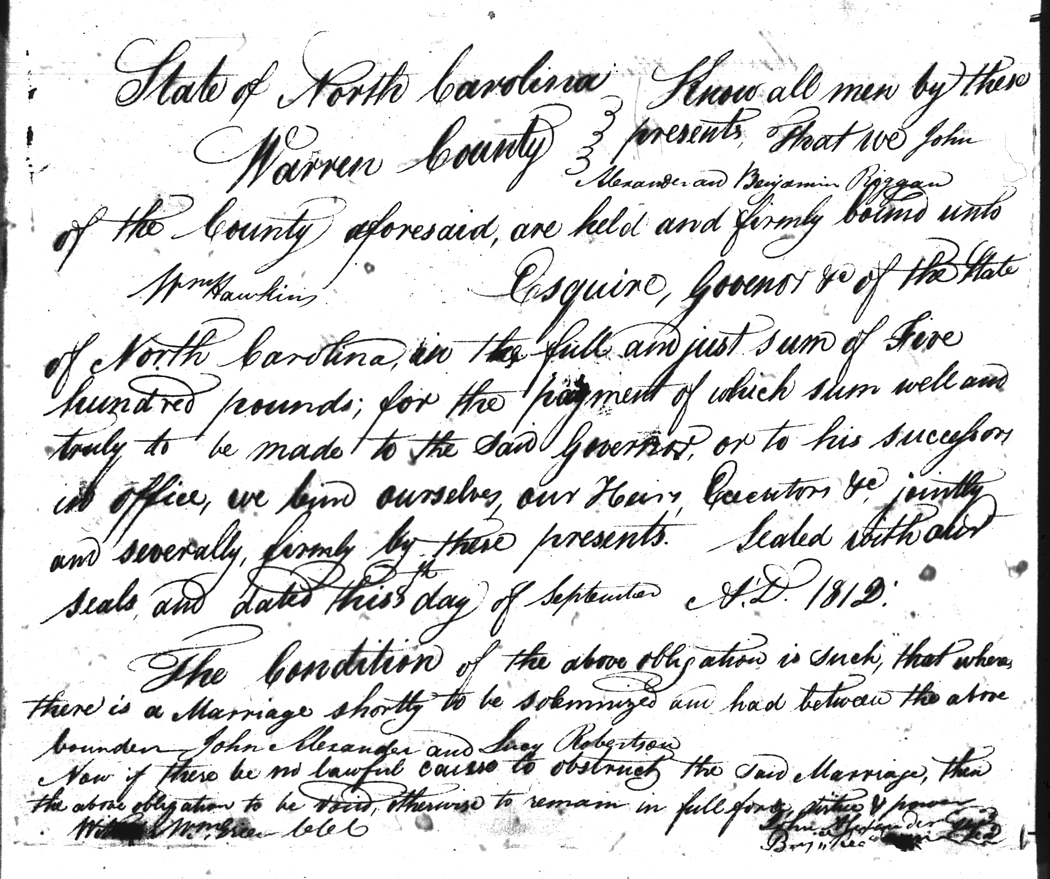 State of North Carolina Know all men by these
Warren County presents, That we John
Alexander and Benjamin Roggan
of the County aforesaid, are held and firmly bound unto
Wm Hawkins Esquire, Govenor &c of the State
of North Carolina, in the full and just sum of Five
hundred pounds; for the payment of which sum well and
truly to be made to the said Governor, or to his successors
in office, we bind ourselves, our Heirs, Executors &c jointly
and severally, firmly by these presents. Sealed with our
seals, and dated this 8th day of September A.D. 1812.
The Condition of the above obligation is such, that where
there is a Marriage shortly to be solemnized and had between the above
bounden John Alexander and Lucy Robertson
Now if there be no lawful causse to obstruct the said Marriage, then
the above obligation to be void, otherwise to remain in full force, virtue & power
Wm Green John Alexander